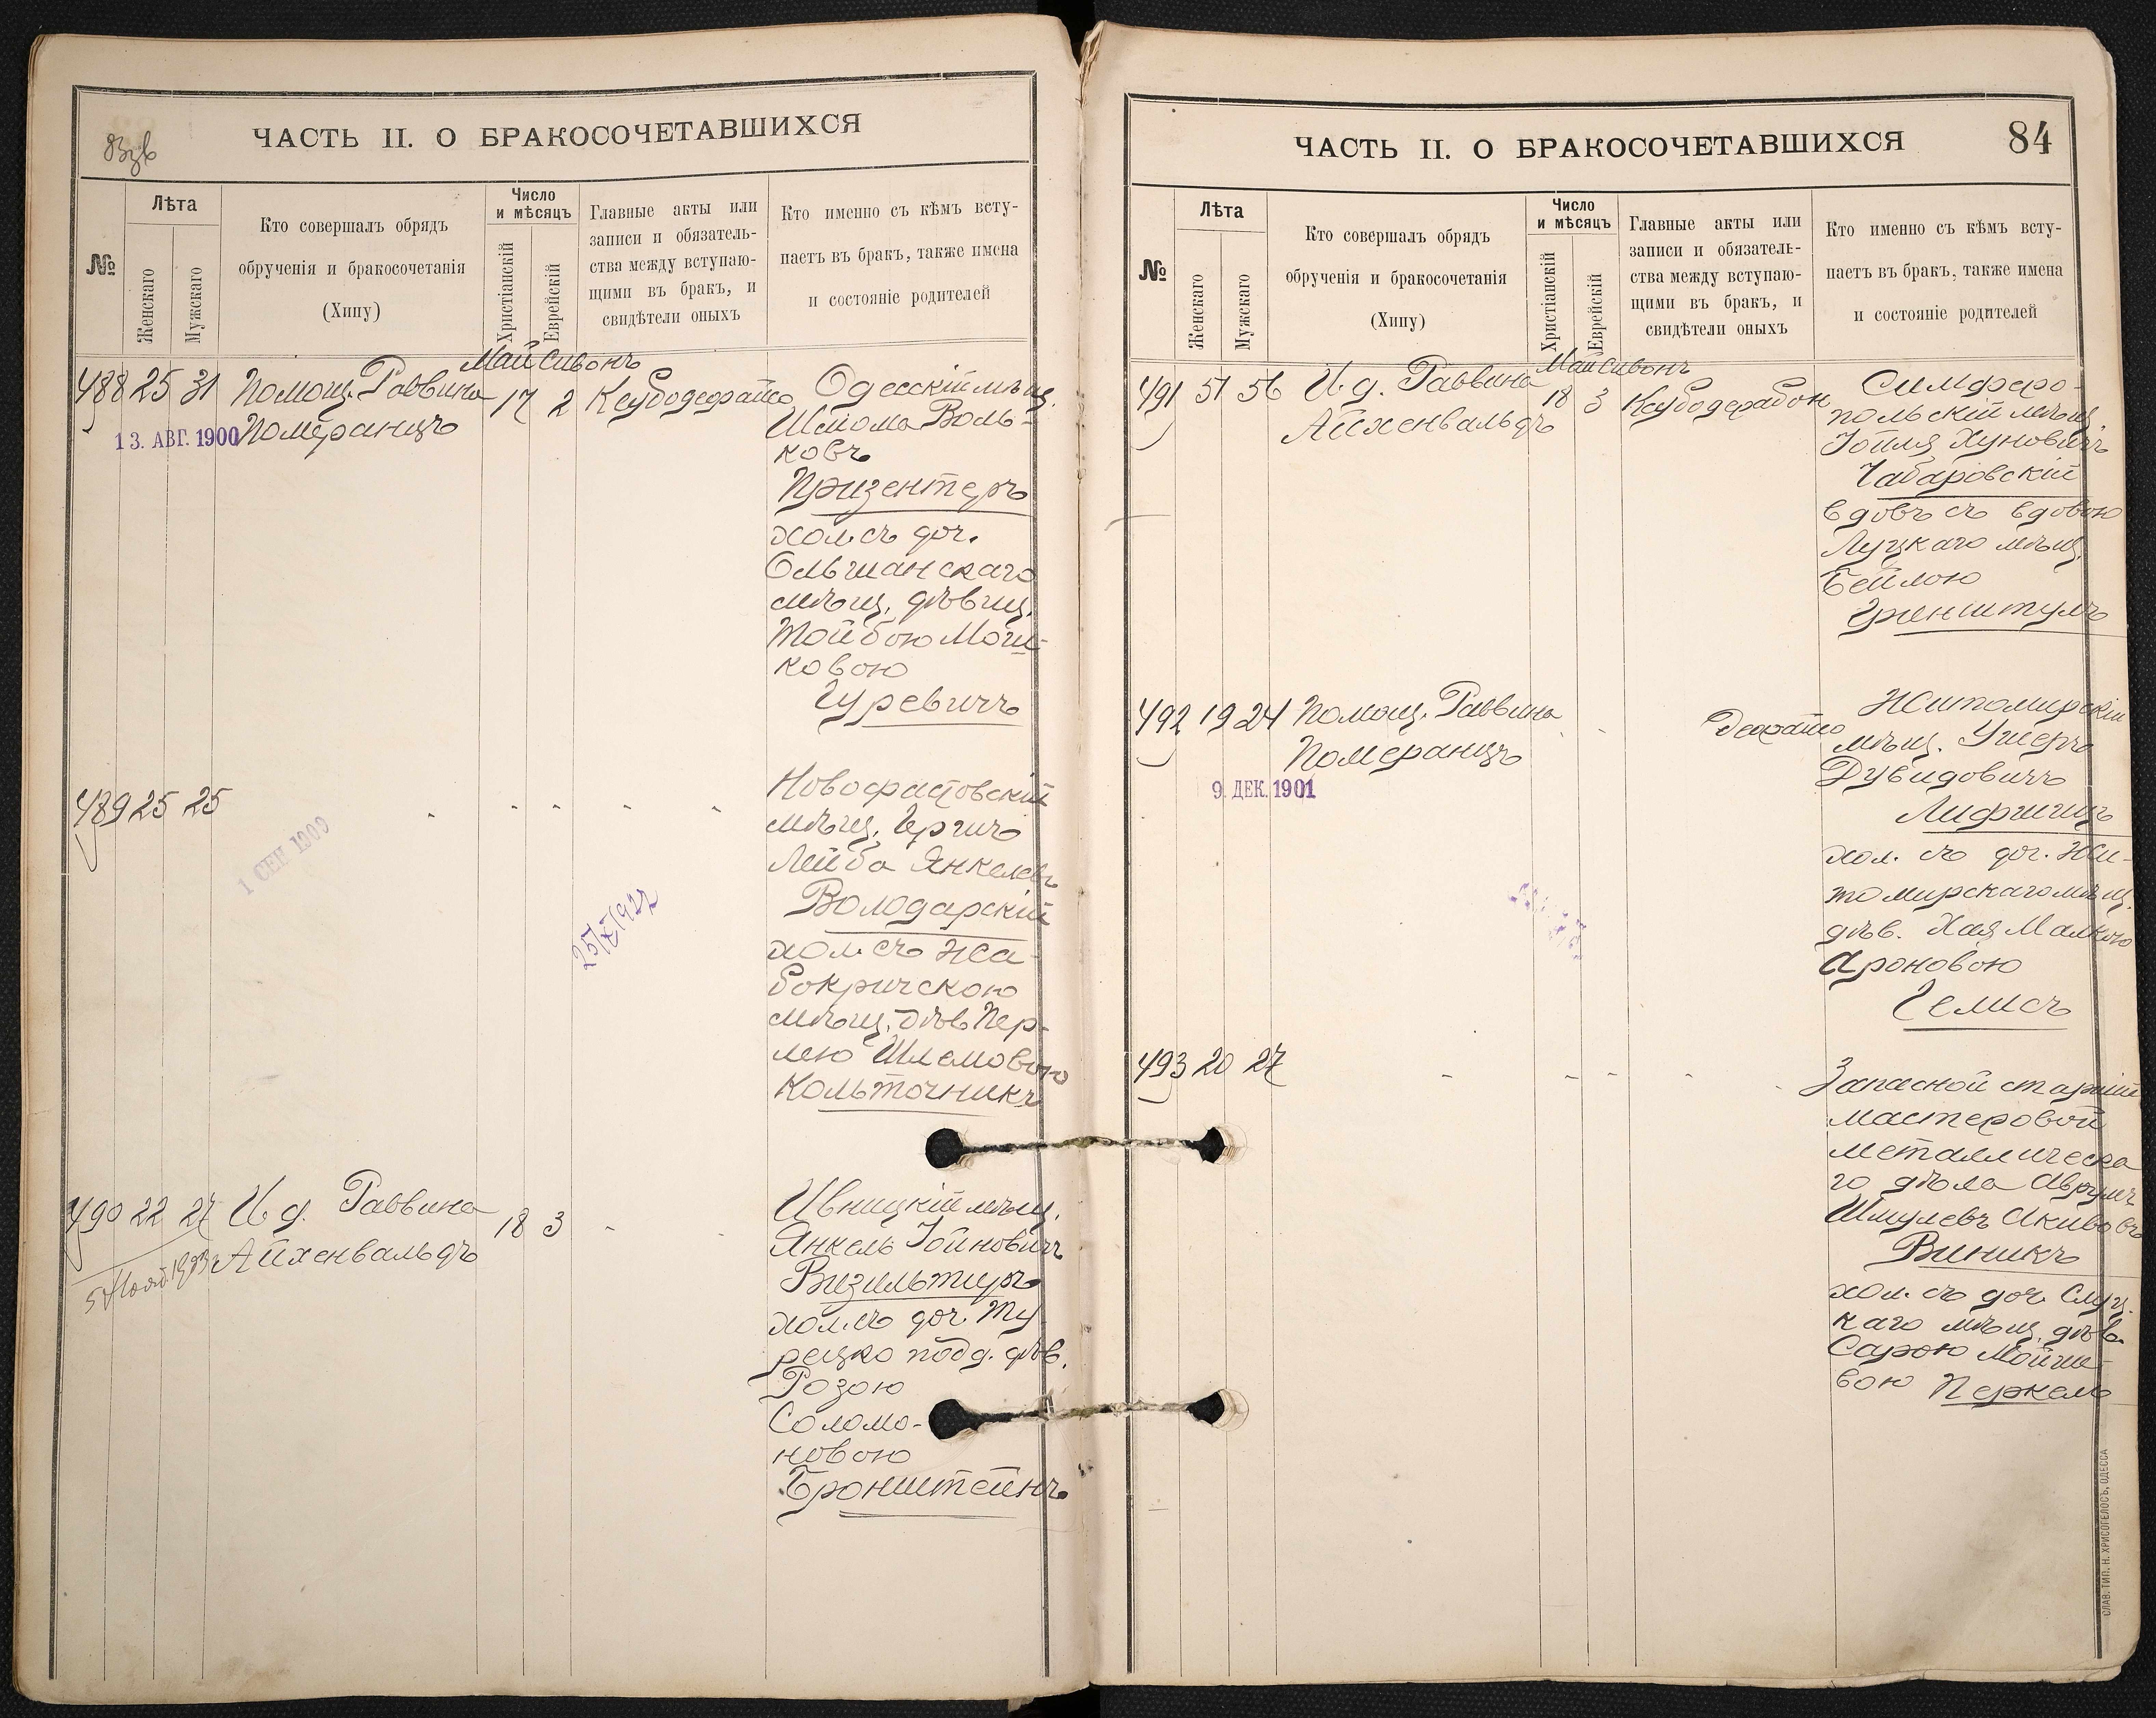 83 зв
ЧАСТЬ II. О БРАКОСОЧЕТАВШИХСЯ
№
Лѣта
Женскаго
Мужскаго
Кто совершалъ обрядъ
обрученія и бракосочетанія
(Хипу)
Число
и мѣсяцъ
Христіанскій
Еврейскій
Главные акты или
записи и обязатель-
ства между вступаю-
щими въ бракъ, и
свидѣтели оныхъ
Кто именно съ кѣмъ всту-
паетъ въ бракъ, также имена
и состояніе родителей
Май Сивонъ
488 25 31 Помощ. Раввина 17 2
Померанцъ
13. АВГ. 1900
Одесскій мѣщ.
Шлома Воль-
ковъ
Призентеръ
хол. съ доч.
Ольшанскаго
мѣщ. дѣвиц.
Тойбою Мош-
ковою
Гуревичъ
489 25 25
1 СЕН 1909
Новофастовскій
мѣщ. Гершъ
Лейба Янкелевъ
Володарскій
хол. съ Жа-
бокричскою
мѣщ. дѣв. Пер-
лею Шлемовою
Кольточникъ
490 22 27 И д. Раввина 18 3
Айхенвальдъ
Ивницкій мѣщ.
Янкель Іойновичъ
Визильтиръ
хол. съ доч. Ту-
рецко подд. дѣв.
Розою
Соломо-
новою
Бронштейнъ
ЧАСТЬ II. О БРАКОСОЧЕТАВШИХСЯ
84
№
Лѣта
Женскаго
Мужскаго
Кто совершалъ обрядъ
обрученія и бракосочетанія
(Хипу)
Число
и мѣсяцъ
Христіанскій
Еврейскій
Главные акты или
записи и обязатель-
ства между вступаю-
щими въ бракъ, и
свидѣтели оныхъ
Кто именно съ кѣмъ всту-
паетъ въ бракъ, также имена
и состояніе родителей
Май Сивонъ
491 51 56 И д. Раввина 18 3
Айхенвальдъ
Симферо-
польскій мѣщ.
Іойля Хуновичъ
Чабаровскій
вдовъ съ вдовою
Луцкаго мѣщ.
Бейлою
Гринштулъ
492 19 24 Помощ. Раввина
Померанцъ
9. ДЕК. 1901
Житомирскій
мѣщ. Ушеръ
Дувидовичъ
Лифшицъ
хол. съ доч. Жи-
томирскаго мѣщ.
дѣв. Хая Малкою
Ароновою
Гелисъ
493 20 27
Запасной старшій
мастеровой
металлическа
го дѣла Аврумъ
Шмулевъ Акивовъ
Винникъ
хол. съ доч. Слуц-
каго мѣщ. дѣв.
Сарою Мойше-
воюПеркель
СЛАВ. ТИП. Н. ХРИСОГЕЛОСЪ, ОДЕССА